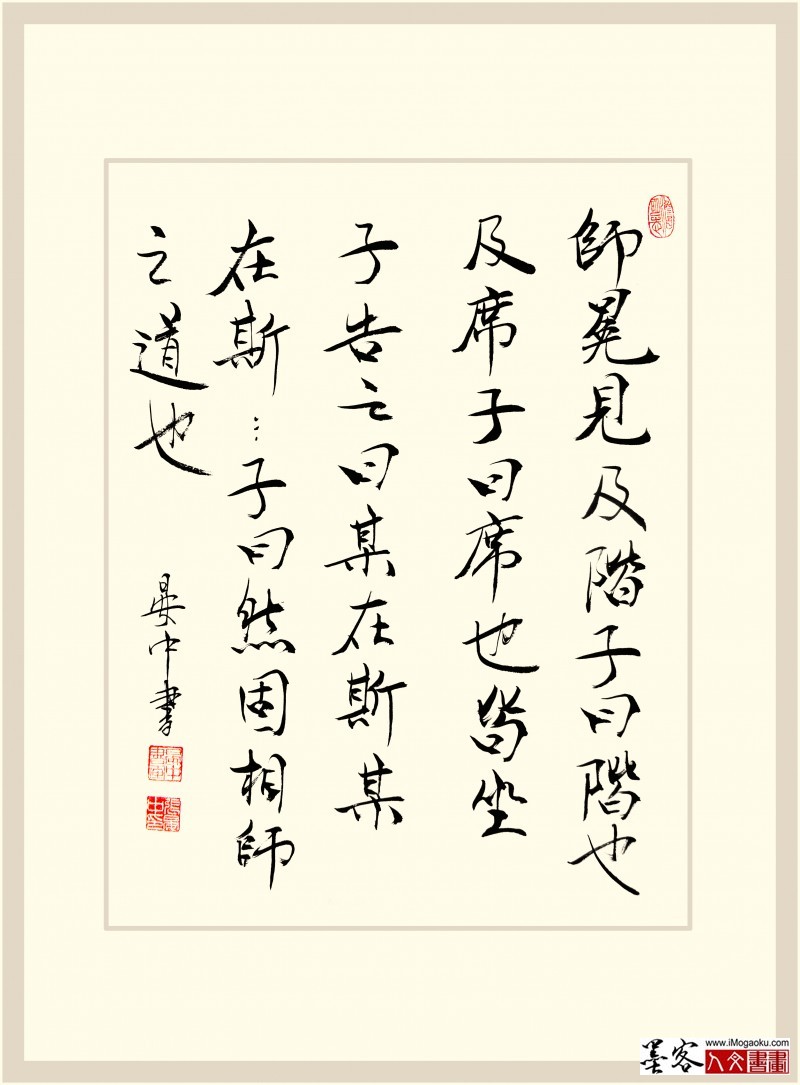 師冕見及階子曰階也
及席子曰席也皆坐
子告之曰某在斯某
在斯…子曰然固相師
之道也
晏中書
墨客
www.iMogaoku.com
人文書畫